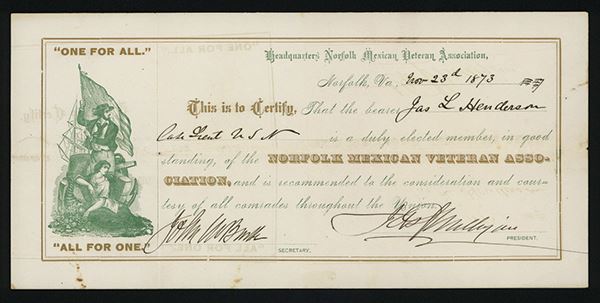 "ONE FOR ALL."
Headquarters Norfolk Mexican Veteran Association,
Norfolk, Va, Nov 23d 1873
This is to Certify, That the bearer Jas L Henderson
U S N is a duly elected member, in good
standing, of the NORFOLK MEXICAN VETERAN ASSO-
CIATION, and is recommended to the consideration and cour-
tesy of all comrades throughout the Union.
"ALL FOR ONE."
SECRETARY.
PRESIDENT.